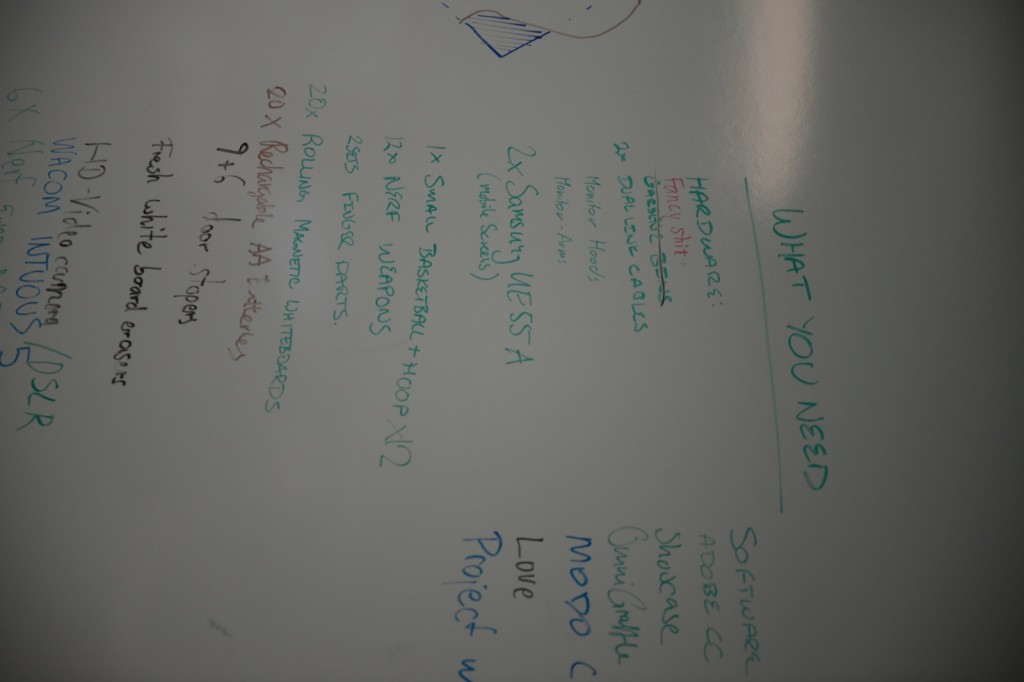 WHAT YOU NEED
HARDWARE:
Fancy shit:
2x DUAL LINK CABLES
Monitor Hoods
Monitor-Arms
2x Samsung VESSA
(mobile screens)
1x SMALL BASKETBALL + HOOP X12
12x NERF WEAPONS
2SETS FINGER DARTS.
20x ROLLING, MAGNETIC WHITEBOARDS
20 X Rechargable AA-Batteries
9+6 door stopers
Fresh white board erasors
HD-Video camera
WACOM INTUOUS 5 /DSLR
6X Nerf
SOFTWARE
ADOBE CC
Showcase
OmniGraffle
MODO C
Love
Project